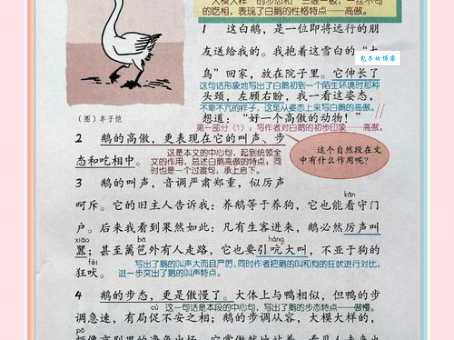 “大模大样”的步态和“三眼一板，一丝不苟”
的吃相，表现了白鹅的性格特点——高傲。
包冬妹博客
1 这白鹅，是一位即将远行的朋
友送给我的。我抱着这雪白的“大
鸟”回家，放在院子里。它伸长了
这句话形象地写出了白鹅初到一个陌生环境时那种
头颈，左顾右盼，我一看这姿态，
不卑不亢的样子，这是从姿态上来写白鹅的高傲。
想道：“好一个高傲的动物！”
第一部分（1）：写作者对白鹅的初步印象——高傲。
（图）丰子恺
2 鹅的高傲，更表现在它的叫声、步
态和吃相中。
这是本文的中心句，起到统领全
文的作用，总述白鹅高傲的特点，同
时也是一个过渡句，承上启下。
这个自然段在文
中有什么作用呢？
3 鹅的叫声，音调严肃郑重，似厉声
kān
呵斥。它的旧主人告诉我：养鹅等于养狗，它也能看守门
户。后来我看到果然如此：凡有生客进来，鹅必然厉声叫
xiāo háng
嚣；甚至篱笆外有人走路，它也要引吭大叫，不亚于狗的
fèi
狂吠。
写出了鹅的叫声大而且严厉，同时作者把鹅的叫和狗的狂吠进行对比，
进一步突出了鹅的叫声特点。
4 鹅的步态，更是傲慢了。大体上与鸭相似，但鸭的步
cù 这一句话是本段的中心句，写出了鹅的步态特点——傲慢。
调急速，有局促不安之相；鹅的步调从容，大模大样的，